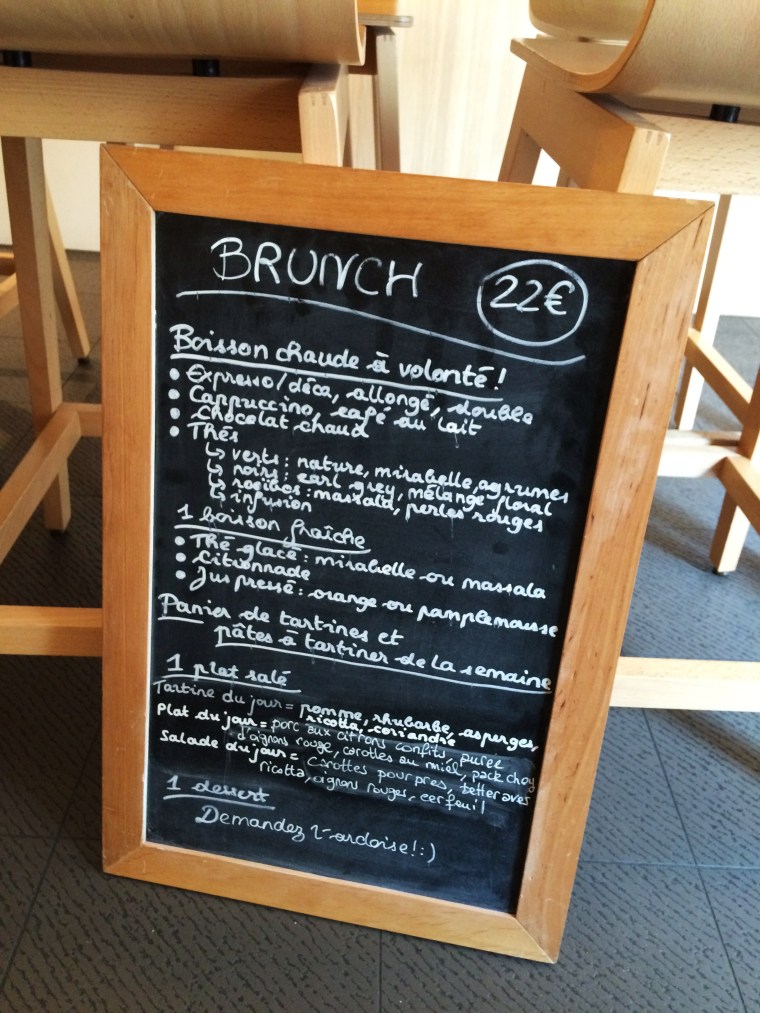 BRUNCH 22€
Boisson chaude à volonté!
• Expresso/déca, allongé, double
• Cappuccino, café au lait
• Chocolat chaud
• Thés
↳ verts: nature, mirabelle, agrumes
↳ noirs: earl grey, mélange floral
↳ rooibos: massala, perles rouges
↳ infusion
1 boisson fraîche
• Thé glacé: mirabelle ou massala
• Citronnade
• Jus pressé: orange ou pamplemousse
Panier de tartines et
pâtes à tartiner de la semaine
1 plat salé
Tartine du jour = pomme, rhubarbe, asperges,
ricotta, coriandre
Plat du jour = porc aux citrons confits, purée
d'oignons rouge, carottes au miel, pack choy
Salade du jour = Carottes pourpres, betteraves
ricotta, oignons rouges, cerfeuil
1 dessert
Demandez l'ardoise! :)